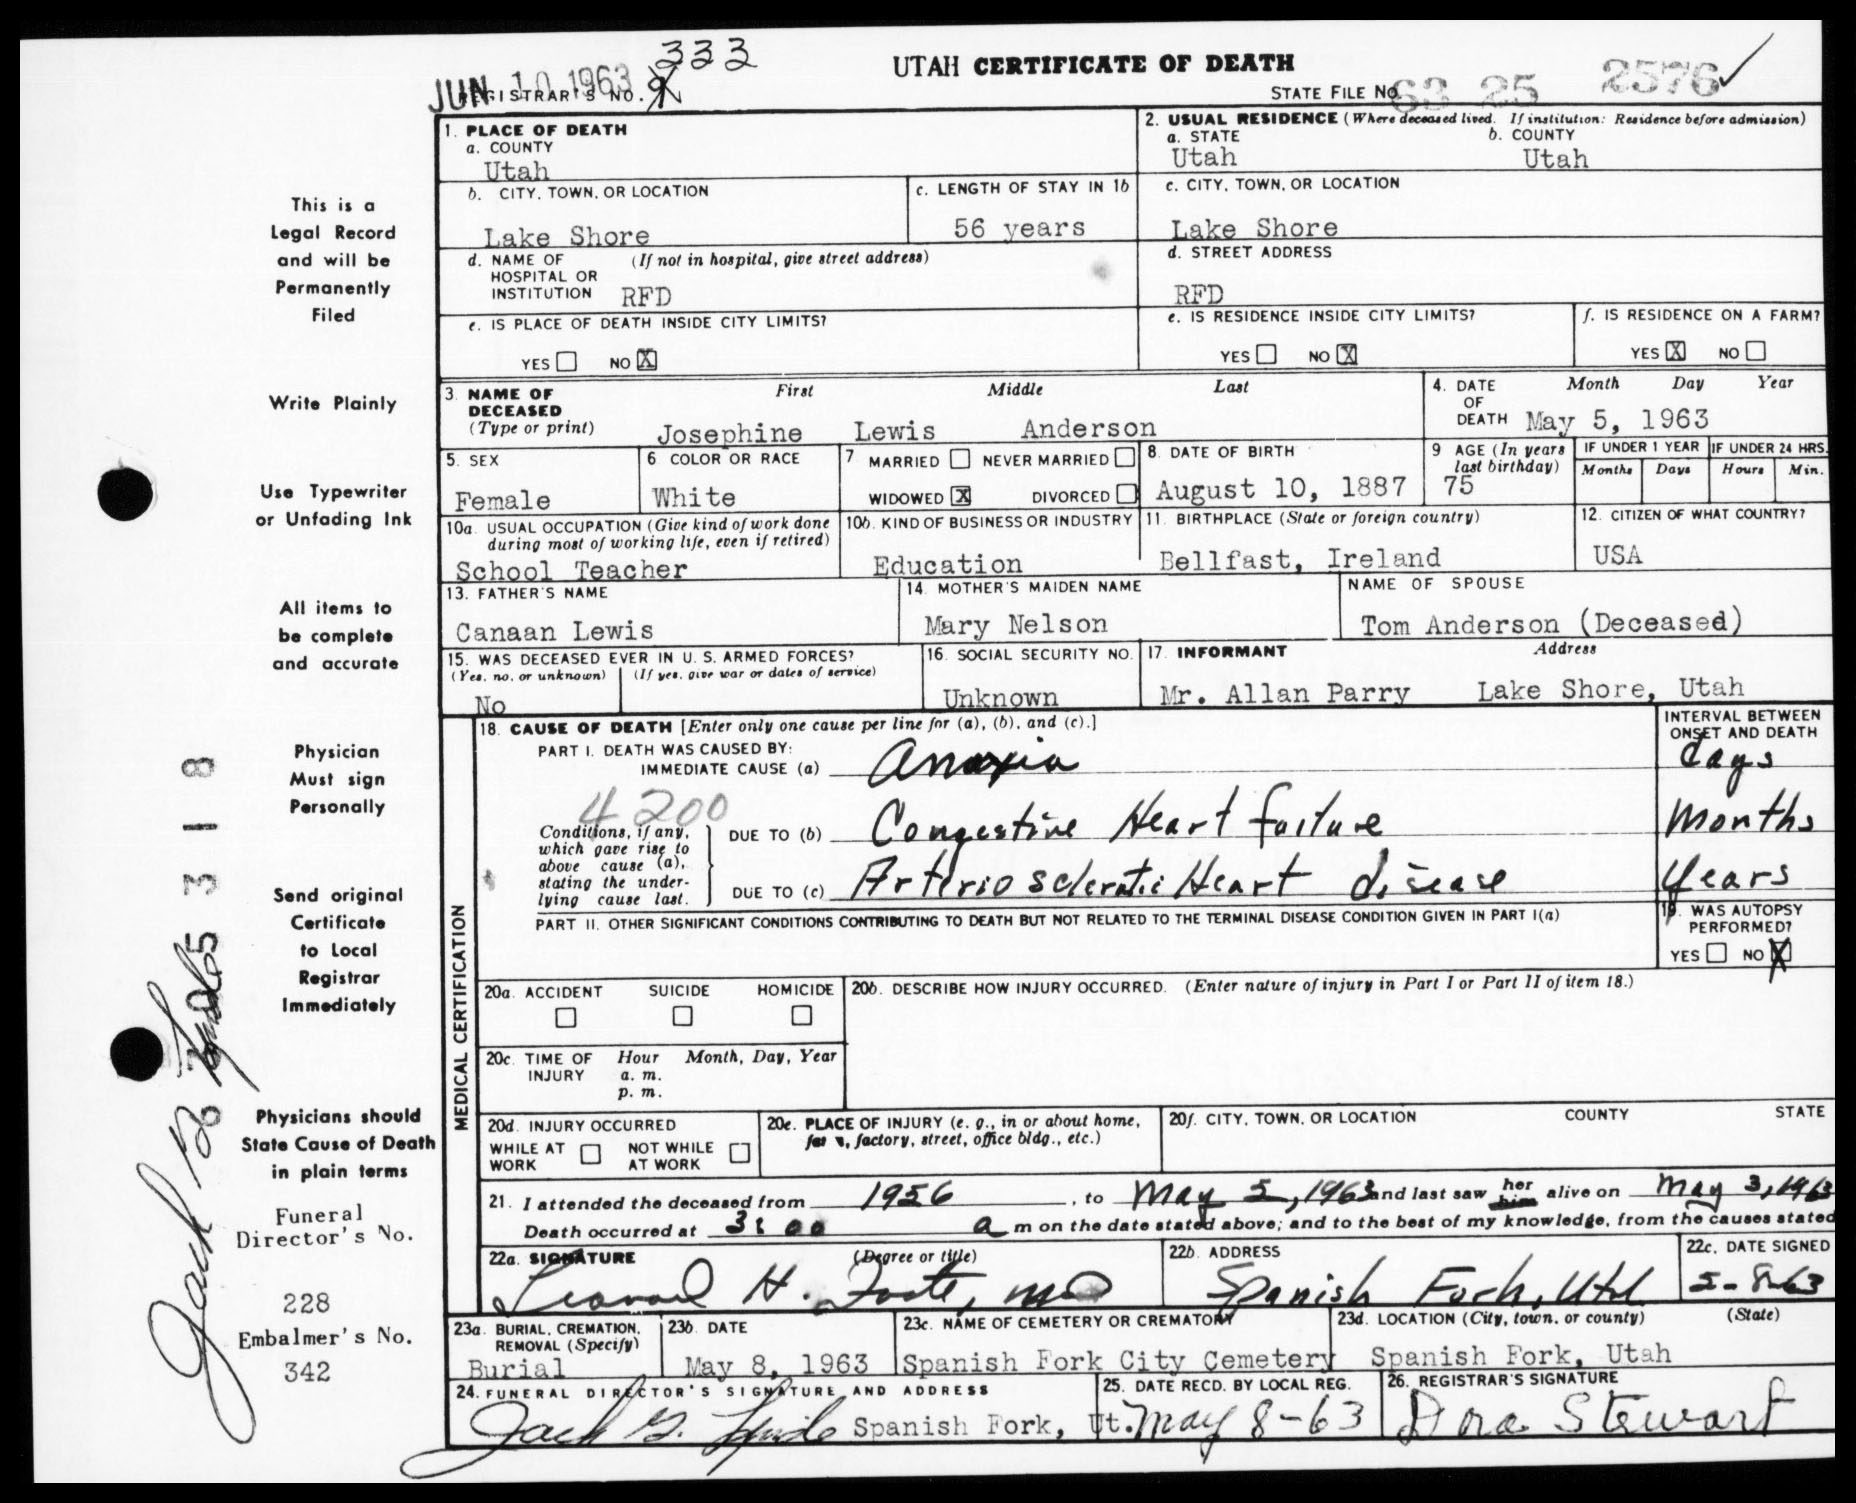 JUN 10 1963
333
UTAH CERTIFICATE OF DEATH
REGISTRAR'S NO.
STATE FILE NO. 63 25 2576
1. PLACE OF DEATH
a. COUNTY
Utah
2. USUAL RESIDENCE (Where deceased lived. If institution: Residence before admission)
a. STATE b. COUNTY
Utah Utah
b. CITY, TOWN, OR LOCATION
Lake Shore
c. LENGTH OF STAY IN 1b
56 years
c. CITY, TOWN, OR LOCATION
Lake Shore
d. NAME OF (If not in hospital, give street address)
HOSPITAL OR
INSTITUTION RFD
d. STREET ADDRESS
RFD
e. IS PLACE OF DEATH INSIDE CITY LIMITS?
YES NO X
e. IS RESIDENCE INSIDE CITY LIMITS?
YES NO X
f. IS RESIDENCE ON A FARM?
YES X NO
3. NAME OF DECEASED
(Type or print)
First Middle Last
Josephine Lewis Anderson
4. DATE OF DEATH
Month Day Year
May 5, 1963
5. SEX
Female
6. COLOR OR RACE
White
7 MARRIED NEVER MARRIED
WIDOWED X DIVORCED
8. DATE OF BIRTH
August 10, 1887
9 AGE (In years last birthday)
75
IF UNDER 1 YEAR
Months Days
IF UNDER 24 HRS.
Hours Min.
10a. USUAL OCCUPATION (Give kind of work done
during most of working life, even if retired)
School Teacher
10b. KIND OF BUSINESS OR INDUSTRY
Education
11. BIRTHPLACE (State or foreign country)
Bellfast, Ireland
12. CITIZEN OF WHAT COUNTRY?
USA
13. FATHER'S NAME
Canaan Lewis
14. MOTHER'S MAIDEN NAME
Mary Nelson
NAME OF SPOUSE
Tom Anderson (Deceased)
15. WAS DECEASED EVER IN U. S. ARMED FORCES?
(Yes, no, or unknown) (If yes, give war or dates of service)
No
16. SOCIAL SECURITY NO.
Unknown
17. INFORMANT Address
Mr. Allan Parry Lake Shore, Utah
MEDICAL CERTIFICATION
18. CAUSE OF DEATH [Enter only one cause per line for (a), (b), and (c).]
INTERVAL BETWEEN
ONSET AND DEATH
PART I. DEATH WAS CAUSED BY:
IMMEDIATE CAUSE (a) Anoxia days
4200
Conditions, if any,
which gave rise to
above cause (a),
stating the under-
lying cause last.
DUE TO (b) Congestive Heart failure Months
DUE TO (c) Arterio sclerotic Heart disease Years
PART II. OTHER SIGNIFICANT CONDITIONS CONTRIBUTING TO DEATH BUT NOT RELATED TO THE TERMINAL DISEASE CONDITION GIVEN IN PART I(a)
19. WAS AUTOPSY
PERFORMED?
YES NO X
20a. ACCIDENT SUICIDE HOMICIDE
20b. DESCRIBE HOW INJURY OCCURRED. (Enter nature of injury in Part I or Part II of item 18.)
20c. TIME OF INJURY
Hour Month, Day, Year
a. m.
p. m.
20d. INJURY OCCURRED
WHILE AT WORK NOT WHILE AT WORK
20e. PLACE OF INJURY (e. g., in or about home,
farm, factory, street, office bldg., etc.)
20f. CITY, TOWN, OR LOCATION COUNTY STATE
21. I attended the deceased from 1956, to May 5, 1963 and last saw her him alive on May 3, 1963
Death occurred at 3:00 a m on the date stated above; and to the best of my knowledge, from the causes stated
22a. SIGNATURE (Degree or title)
Leonard H. Foote, MD
22b. ADDRESS
Spanish Fork, Utah
22c. DATE SIGNED
5-8-63
23a. BURIAL, CREMATION,
REMOVAL (Specify)
Burial
23b. DATE
May 8, 1963
23c. NAME OF CEMETERY OR CREMATORY
Spanish Fork City Cemetery
23d. LOCATION (City, town, or county) (State)
Spanish Fork, Utah
24. FUNERAL DIRECTOR'S SIGNATURE AND ADDRESS
Jack G. Spanish Fork, Ut.
25. DATE RECD. BY LOCAL REG.
May 8-63
26. REGISTRAR'S SIGNATURE
Dora Stewart
This is a
Legal Record
and will be
Permanently
Filed
Write Plainly
Use Typewriter
or Unfading Ink
All items to
be complete
and accurate
Physician
Must sign
Personally
Send original
Certificate
to Local
Registrar
Immediately
Physicians should
State Cause of Death
in plain terms
Funeral
Director's No.
228
Embalmer's No.
342
Jack
5 3 1 8